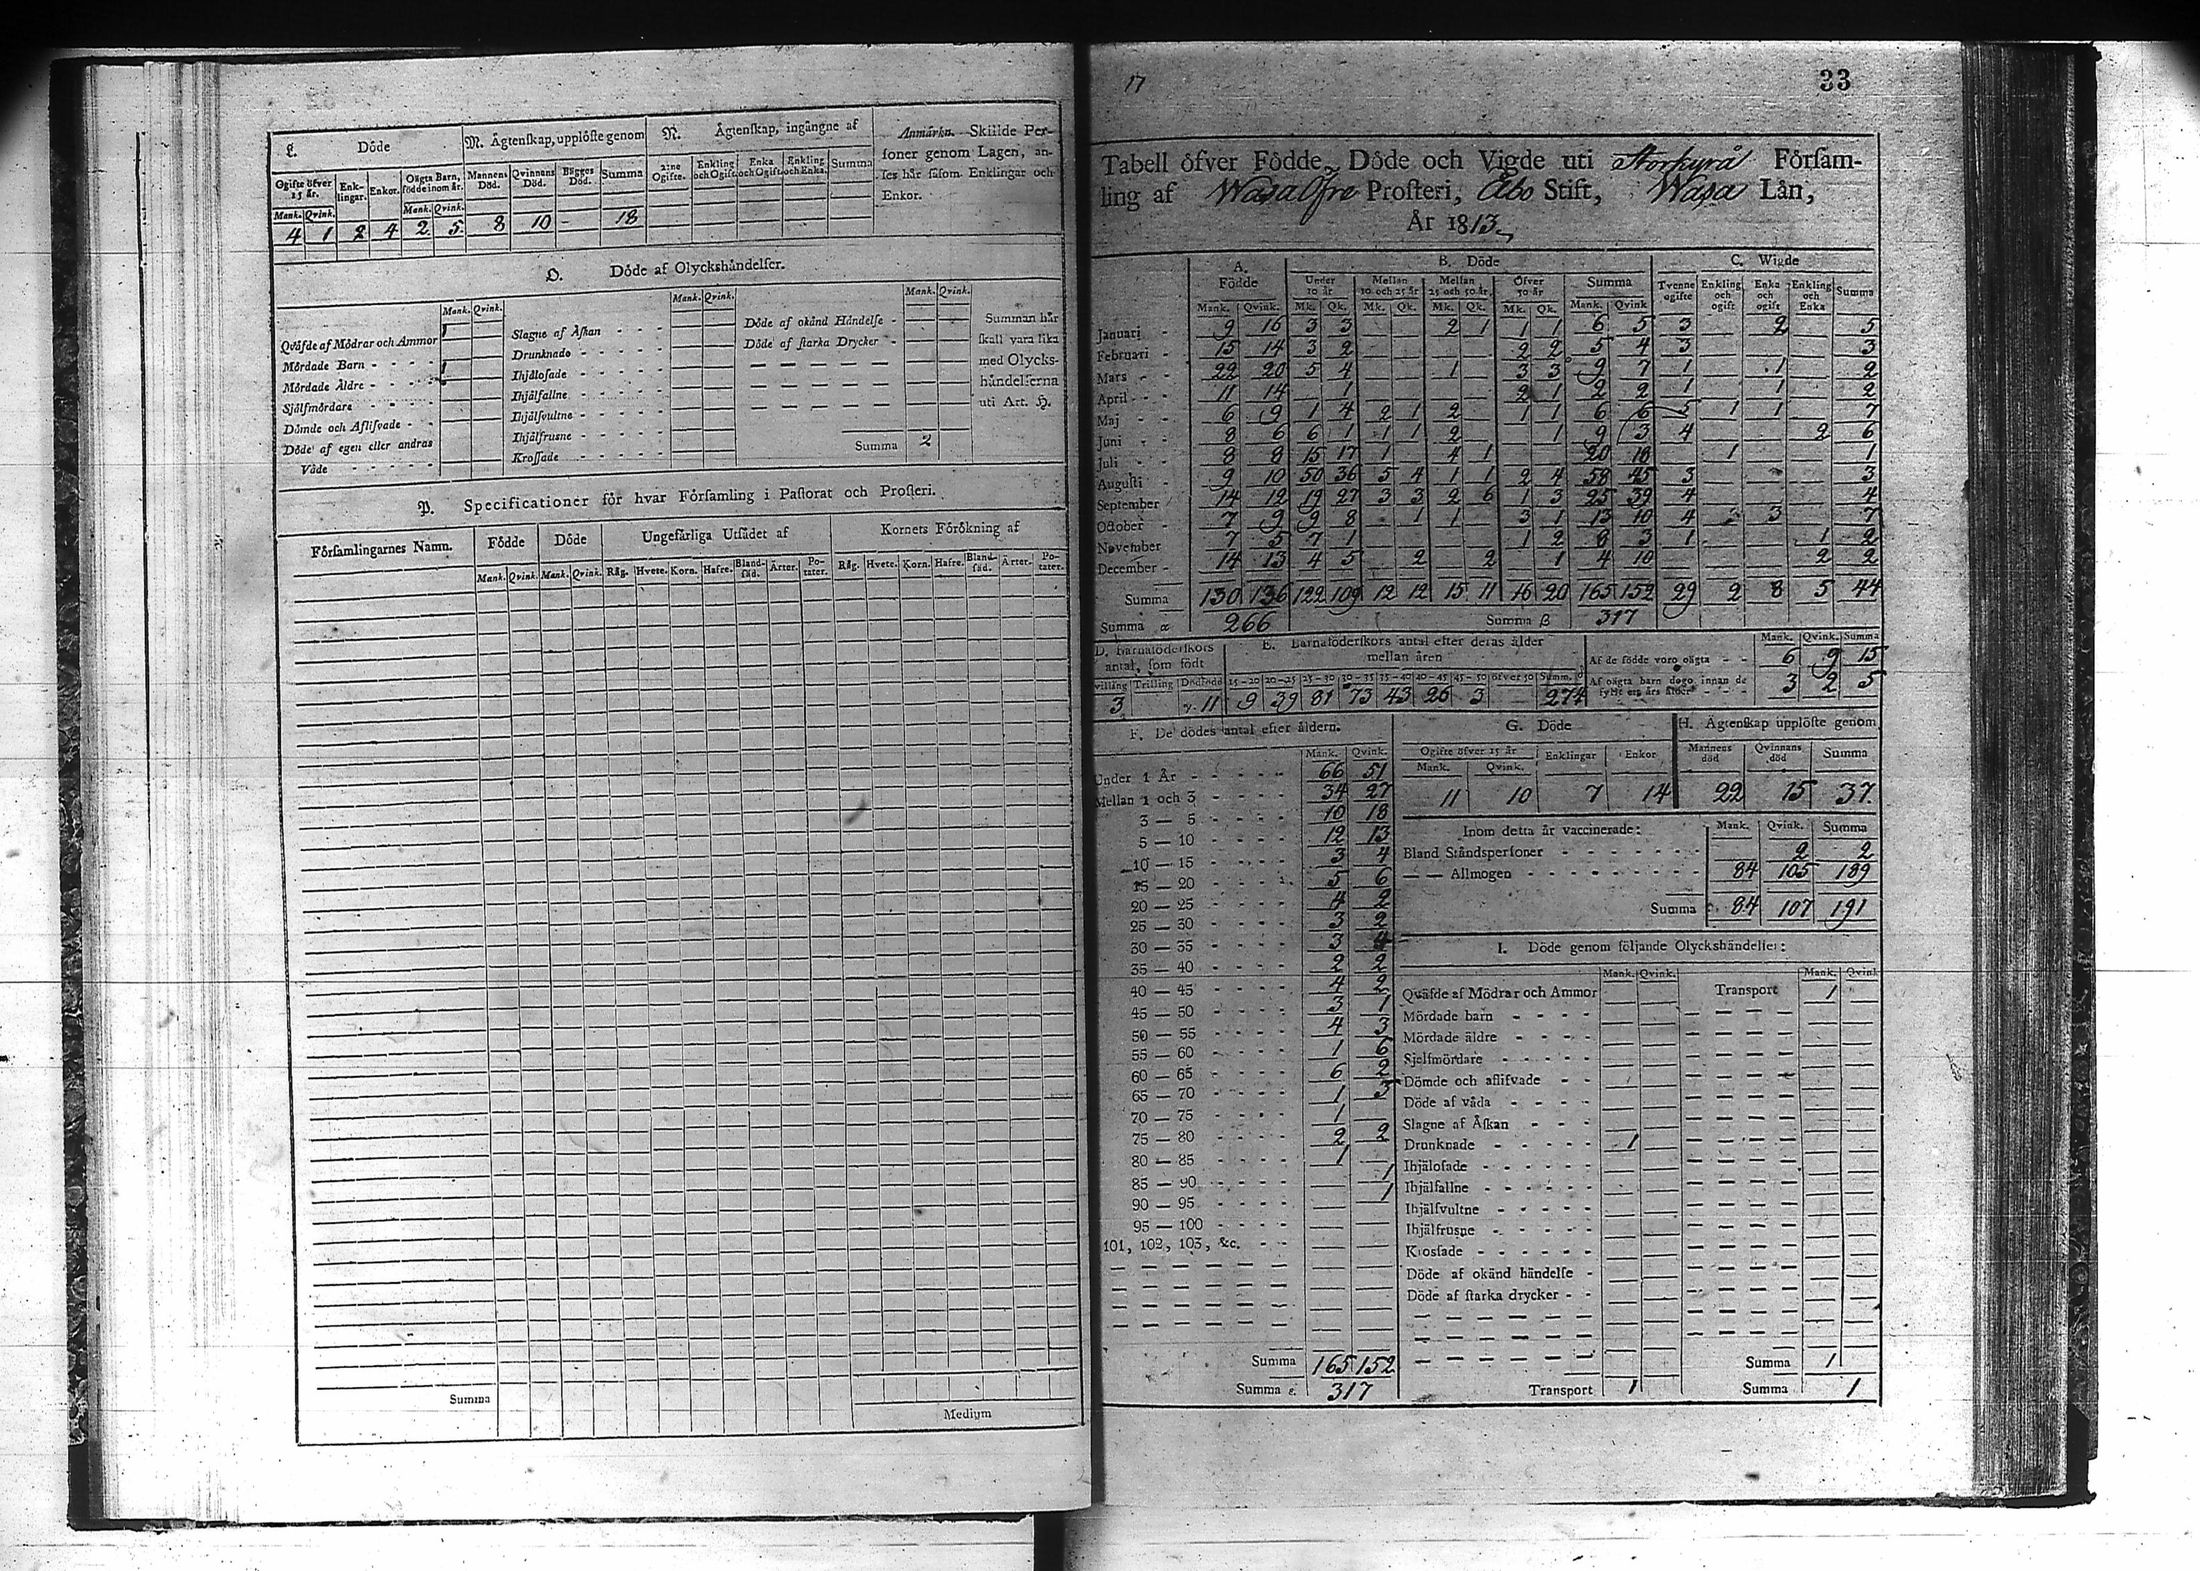 L. Döde
M. Ägtenskap, upplöste genom
N. Ägtenskap, ingångne af
Anmärkn. Skiilde Per-
soner genom Lagen, an-
ses här såsom Enklingar och
Enkor.
Ogifte öfver 15 år. Enk-lingar. Enkor. Oägta Barn, födde inom år. Mannens Död. Qvinnans Död. Bägges Död. Summa 2:ne Ogifte. Enkling och Ogift. Enka och Ogift. Enkling och Enka. Summa
Mank. Qvink. Mank. Qvink.
4 1 2 4 2 5 8 10 - 18
O. Döde af Olyckshändelser.
Mank. Qvink. Mank. Qvink. Mank. Qvink.
Qväfde af Mödrar och Ammor 1 Slagne af Åskan - - - Döde af okänd Händelse - Summan här
Mördade Barn - - - - Drunknade - - - - - Döde af starka Drycker - skall vara lika
Mördade Äldre - - - - Ihjälosade - - - - - med Olycks-
Sjölfmördare - - - - Ihjälfallne - - - - - händelserna
Dömde och Aflifvade - - Ihjälfvultne - - - - - uti Art. H.
Döde af egen eller andras Ihjälfrusne - - - - -
Våde - - - - - Krossade - - - - - Summa 2
P. Specificationer för hvar Församling i Pastorat och Prosteri.
Församlingarnes Namn. Födde Döde Ungefärliga Utsädet af Kornets Förökning af
Mank. Qvink. Mank. Qvink. Råg. Hvete. Korn. Hafre. Bland-säd. Ärter. Po-tater. Råg. Hvete. Korn. Hafre. Bland-säd. Ärter. Po-tater.
Summa
Medium
17
33
Tabell öfver Födde, Döde och Vigde uti Storkyrå Försam-
ling af Wasa Öfre Prosteri, Åbo Stift, Wasa Län,
År 1813
A. Födde B. Döde C. Wigde
Under 10 år Mellan 10 och 25 år Mellan 25 och 50 år. Öfver 50 år Summa Tvenne ogifte Enkling och ogift Enka och ogift Enkling och Enka Summa
Mank. Qvink. Mk. Qk. Mk. Qk. Mk. Qk. Mk. Qk. Mank. Qvink
Januari - 9 16 3 3 2 1 1 1 6 5 3 2 5
Februari - 15 14 3 2 2 2 5 4 3 3
Mars - - 22 20 5 4 1 3 3 9 7 1 1 2
April - - 11 14 1 2 1 2 2 1 1 2
Maj - - 6 9 1 4 2 1 2 1 1 6 6 5 1 1 7
Juni - - 8 6 6 1 1 1 2 1 9 3 4 2 6
Juli - - 8 8 15 17 1 4 1 20 18 1 1
Augusti - 9 10 50 36 5 4 1 1 2 4 58 45 3 3
September 14 12 19 27 3 3 2 6 1 3 25 39 4 4
October - 7 9 9 8 1 1 3 1 13 10 4 3 7
November 7 5 7 1 1 2 8 3 1 1 2
December - 14 13 4 5 2 2 1 4 10 2 2
Summa 130 136 122 109 12 12 15 11 16 20 165 152 29 2 8 5 44
Summa α 266 Summa β 317
D. Barnaföderskors antal, som födt
E. Barnaföderskors antal efter deras ålder mellan åren
Mank. Qvink. Summa
Af de födde voro oägta - - 6 9 15
Af oägta barn dogo innan de fyllt ett års ålder - - - 3 2 5
Tvilling Trilling Dödfödd 15-20 20-25 25-30 30-35 35-40 40-45 45-50 öfver 50 Summ.
3 11 9 39 81 73 43 26 3 274
F. De dödes antal efter åldern.
Mank. Qvink.
Under 1 År - - - - - 66 51
Mellan 1 och 3 - - - - 34 27
3 — 5 - - - - 10 18
5 — 10 - - - - 12 13
10 — 15 - - - - 3 4
15 — 20 - - - - 5 6
20 — 25 - - - - 4 2
25 — 30 - - - - 3 2
30 — 35 - - - - 3 4
35 — 40 - - - - 2 2
40 — 45 - - - - 4 2
45 — 50 - - - - 3 1
50 — 55 - - - - 4 3
55 — 60 - - - - 1 6
60 — 65 - - - - 6 2
65 — 70 - - - - 1 3
70 — 75 - - - - 1
75 — 80 - - - - 2 2
80 — 85 - - - - 1
85 — 90 - - - - 1
90 — 95 - - - - 1
95 — 100 - - - -
101, 102, 103, &c. - -
Summa 165 152
Summa ε. 317
G. Döde
Ogifte öfver 15 år Enklingar Enkor
Mank. Qvink.
11 10 7 14
H. Ägtenskap upplöste genom
Mannens död Qvinnans död Summa
22 15 37.
Inom detta år vaccinerade: Mank. Qvink. Summa
Bland Ståndspersoner - - - - - - - 2 2
— — Allmogen - - - - - - - - - 84 105 189
Summa 84 107 191
I. Döde genom följande Olyckshändelser:
Mank. Qvink. Mank. Qvink
Qväfde af Mödrar och Ammor Transport 1
Mördade barn - - - -
Mördade äldre - - - -
Sjelfmördare - - - - -
Dömde och aflifvade - -
Döde af våda - - - -
Slagne af Åskan - - -
Drunknade - - - - - 1
Ihjälosade - - - - - -
Ihjälfallne - - - - - -
Ihjälfvultne - - - - -
Ihjälfrusne - - - - -
Krossade - - - - - -
Döde af okänd händelse -
Döde af starka drycker - -
Summa 1
Transport 1 Summa 1